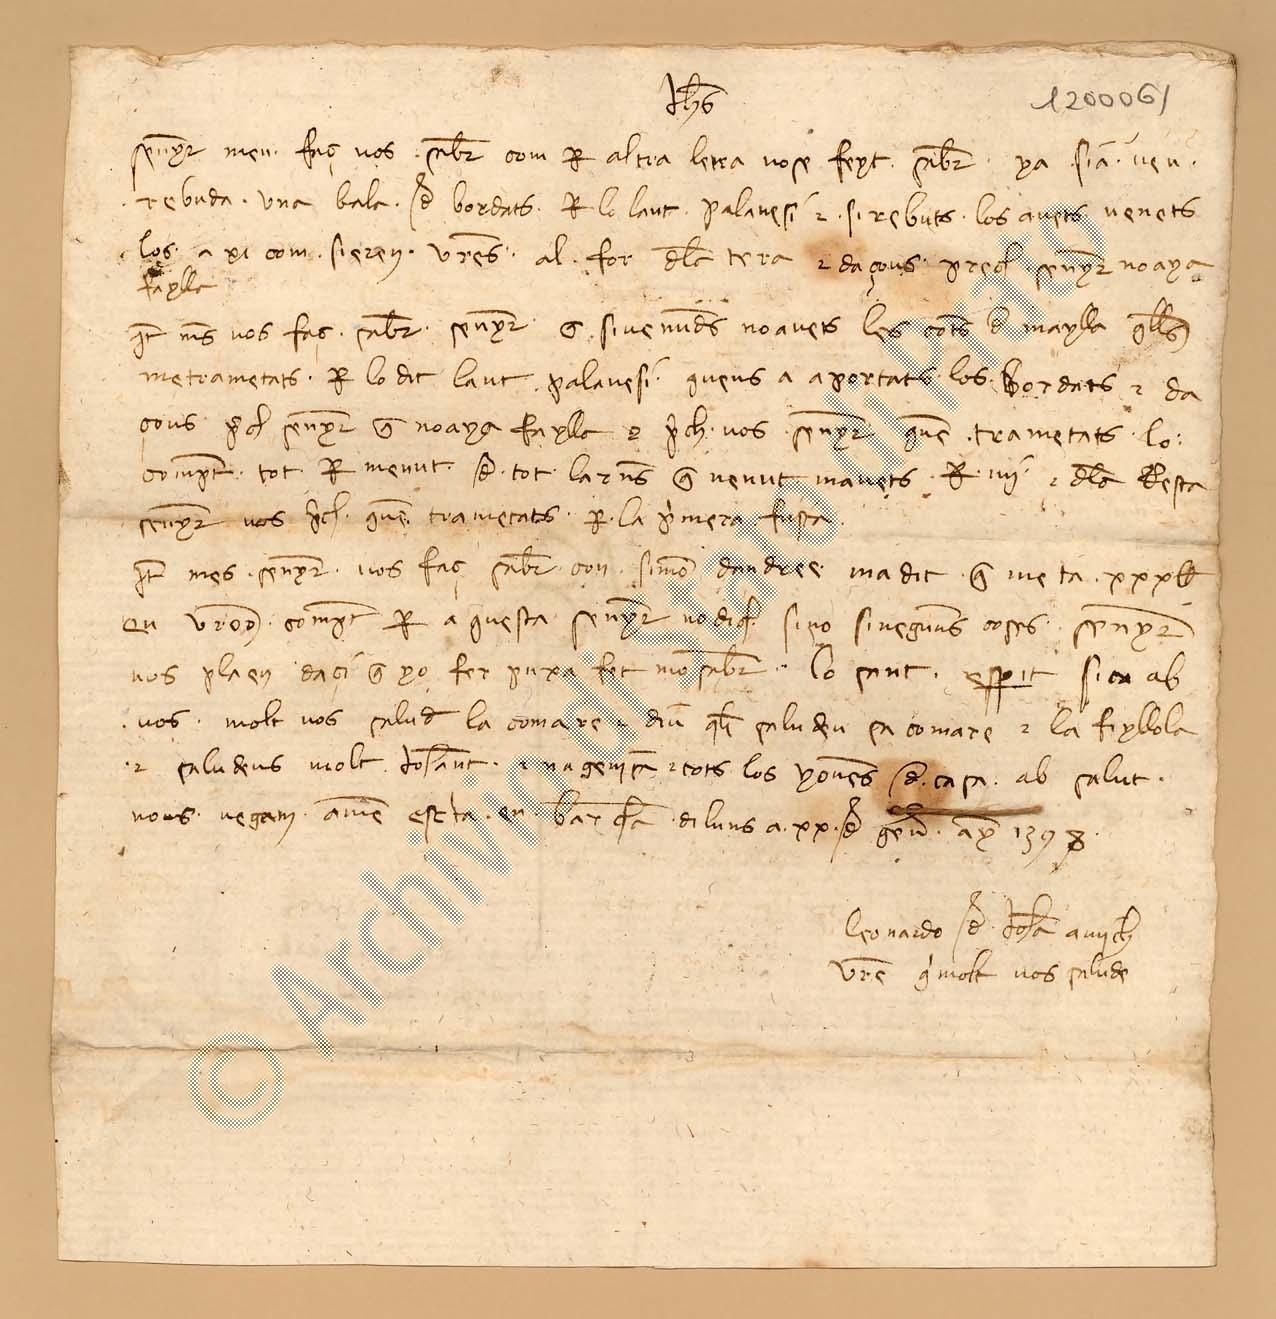 Jhs
1200061
senyer meu fas vos saber com per altra letra vos e feyt saber ya sia ven
rebuda una bala de bordats per lo laut palavesi e si rebuts los avets venets
los axi com si eren vres al for dla tera e daçous prech senyer no aya
faylla
It mes vos fas saber senyer que si venuds no avets les cots de maylla quells
me trametats per lo dit laut palavesi queus a aportats los bordats e da
çous prech senyer que no aya faylla e prech vos senyer quem trametats lo
compt tot per menut de tot larnes que venut mavets per mi e dla Resta
senyer vos prech quem trametats per la primera fusta
It mes senyer vos fas saber con simo dandree ma dit que meta xxx
en vre compt per aquesta senyer no dich sino si negunes coses senyer
vos plaen daci que yo fer puxa fet mo saber lo sant esperit sia ab
vos molt vos saluda la comare e diu quel saludeu sa comare e la fiyllola
e saludeus molt Johant e na genisa e tots los yovens de casa ab salut
nous vegam amen escrita en barchna diluns a xx de gener ayn 1398
leonardo de Johan
vre qui molt vos saluda
© Archivio di Stato di Prato